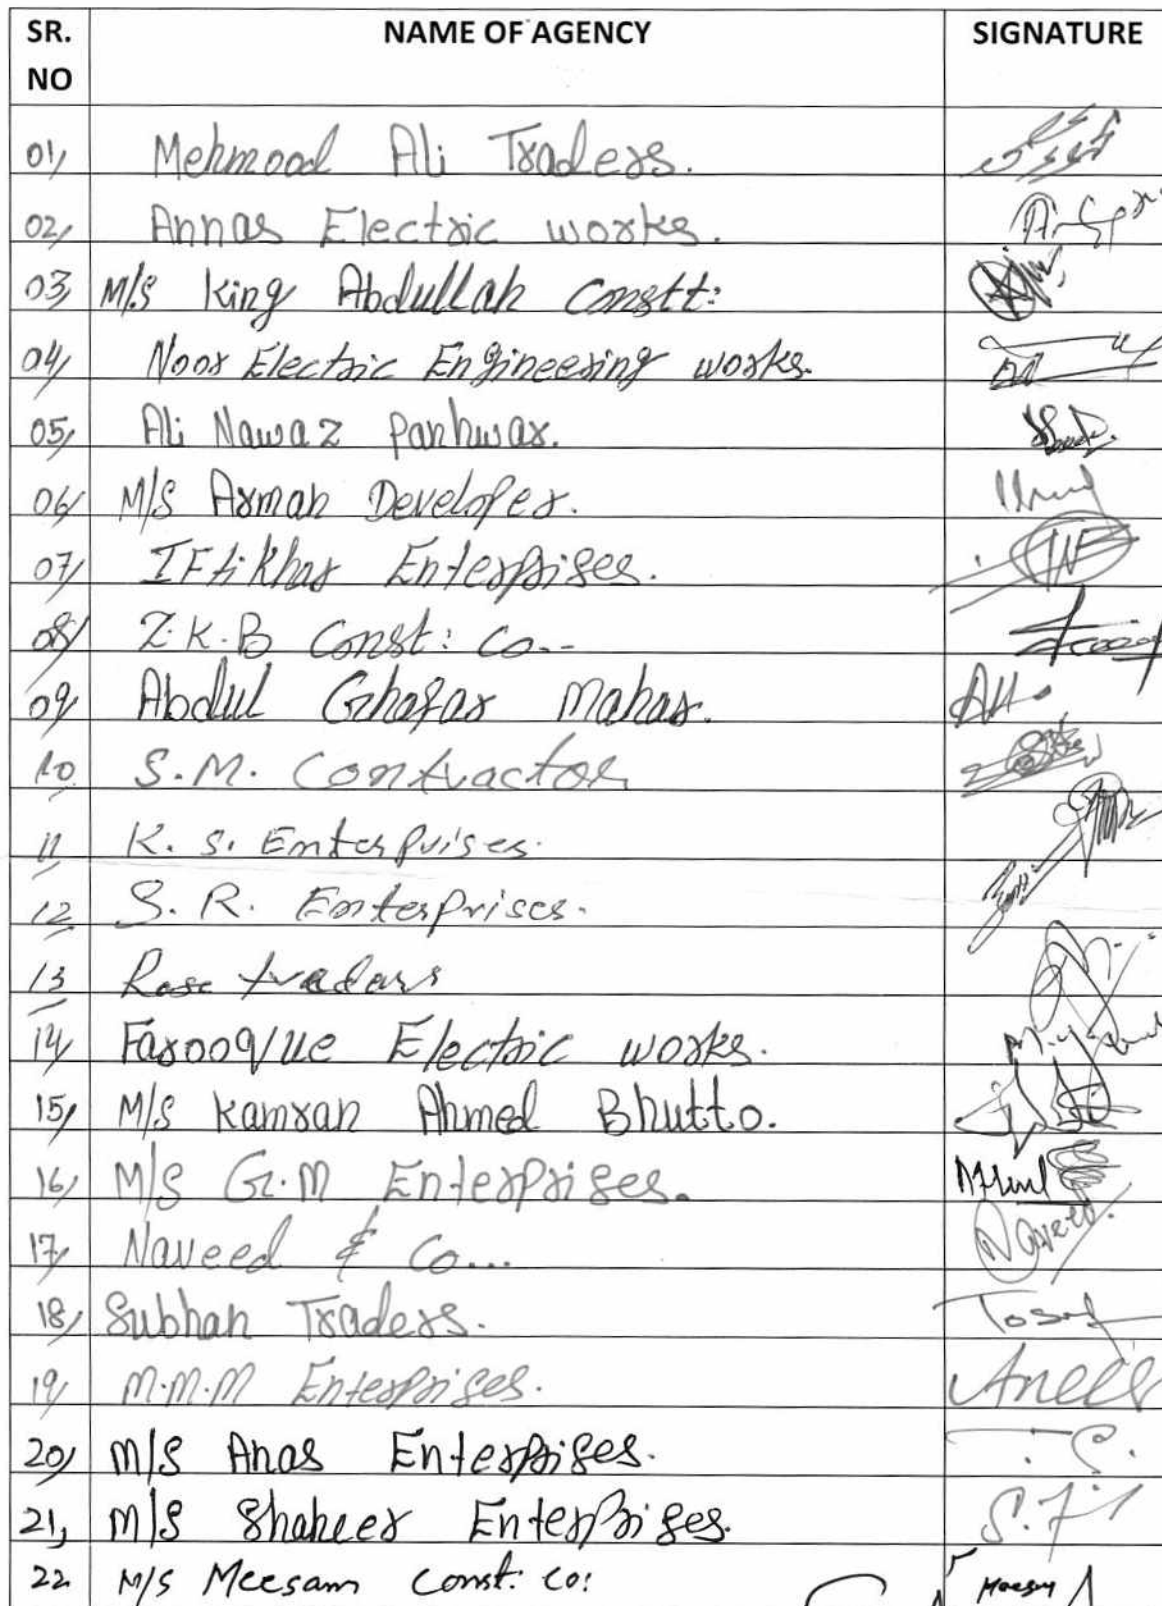 SR. NO NAME OF AGENCY SIGNATURE
01, Mehmood Ali Traders.
02, Annas Electric works.
03, M/S King Abdullah Constt:
04, Noor Electric Engineering works.
05, Ali Nawaz Panhwar.
06, M/S Arman Developer.
07, IFtikhar Enterprises.
08, Z.K.B Const: Co...
09, Abdul Ghafar Mahar.
10 S.M. Contractor
11 K. S. Enterprises.
12 S. R. Enterprises.
13 Rose traders
14, Farooque Electric works.
15, M/S Kamran Ahmed Bhutto.
16, M/S G.M Enterprises.
17, Naveed & Co... Naveed.
18, Subhan Traders.
19, M.M.M Enterprises.
20, M/S Anas Enterprises.
21, M/S Shaheer Enterprises.
22 M/S Meesam Const: Co: